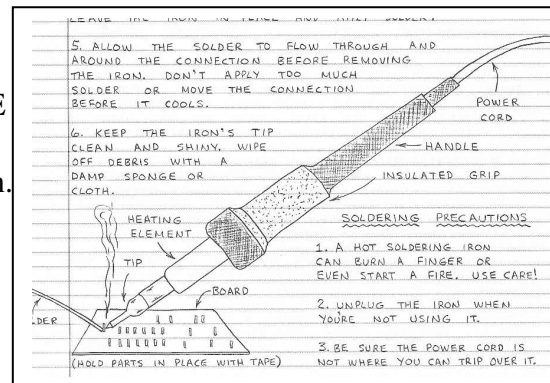 LEAVE THE IRON IN PLACE AND APPLY SOLDER.
5. ALLOW THE SOLDER TO FLOW THROUGH AND
AROUND THE CONNECTION BEFORE REMOVING
THE IRON. DON'T APPLY TOO MUCH
SOLDER OR MOVE THE CONNECTION
BEFORE IT COOLS.
6. KEEP THE IRON'S TIP
CLEAN AND SHINY. WIPE
OFF DEBRIS WITH A
DAMP SPONGE OR
CLOTH.
POWER
CORD
HANDLE
INSULATED GRIP
HEATING
ELEMENT
TIP
BOARD
(HOLD PARTS IN PLACE WITH TAPE)
SOLDERING PRECAUTIONS
1. A HOT SOLDERING IRON
CAN BURN A FINGER OR
EVEN START A FIRE. USE CARE!
2. UNPLUG THE IRON WHEN
YOU'RE NOT USING IT.
3. BE SURE THE POWER CORD IS
NOT WHERE YOU CAN TRIP OVER IT.